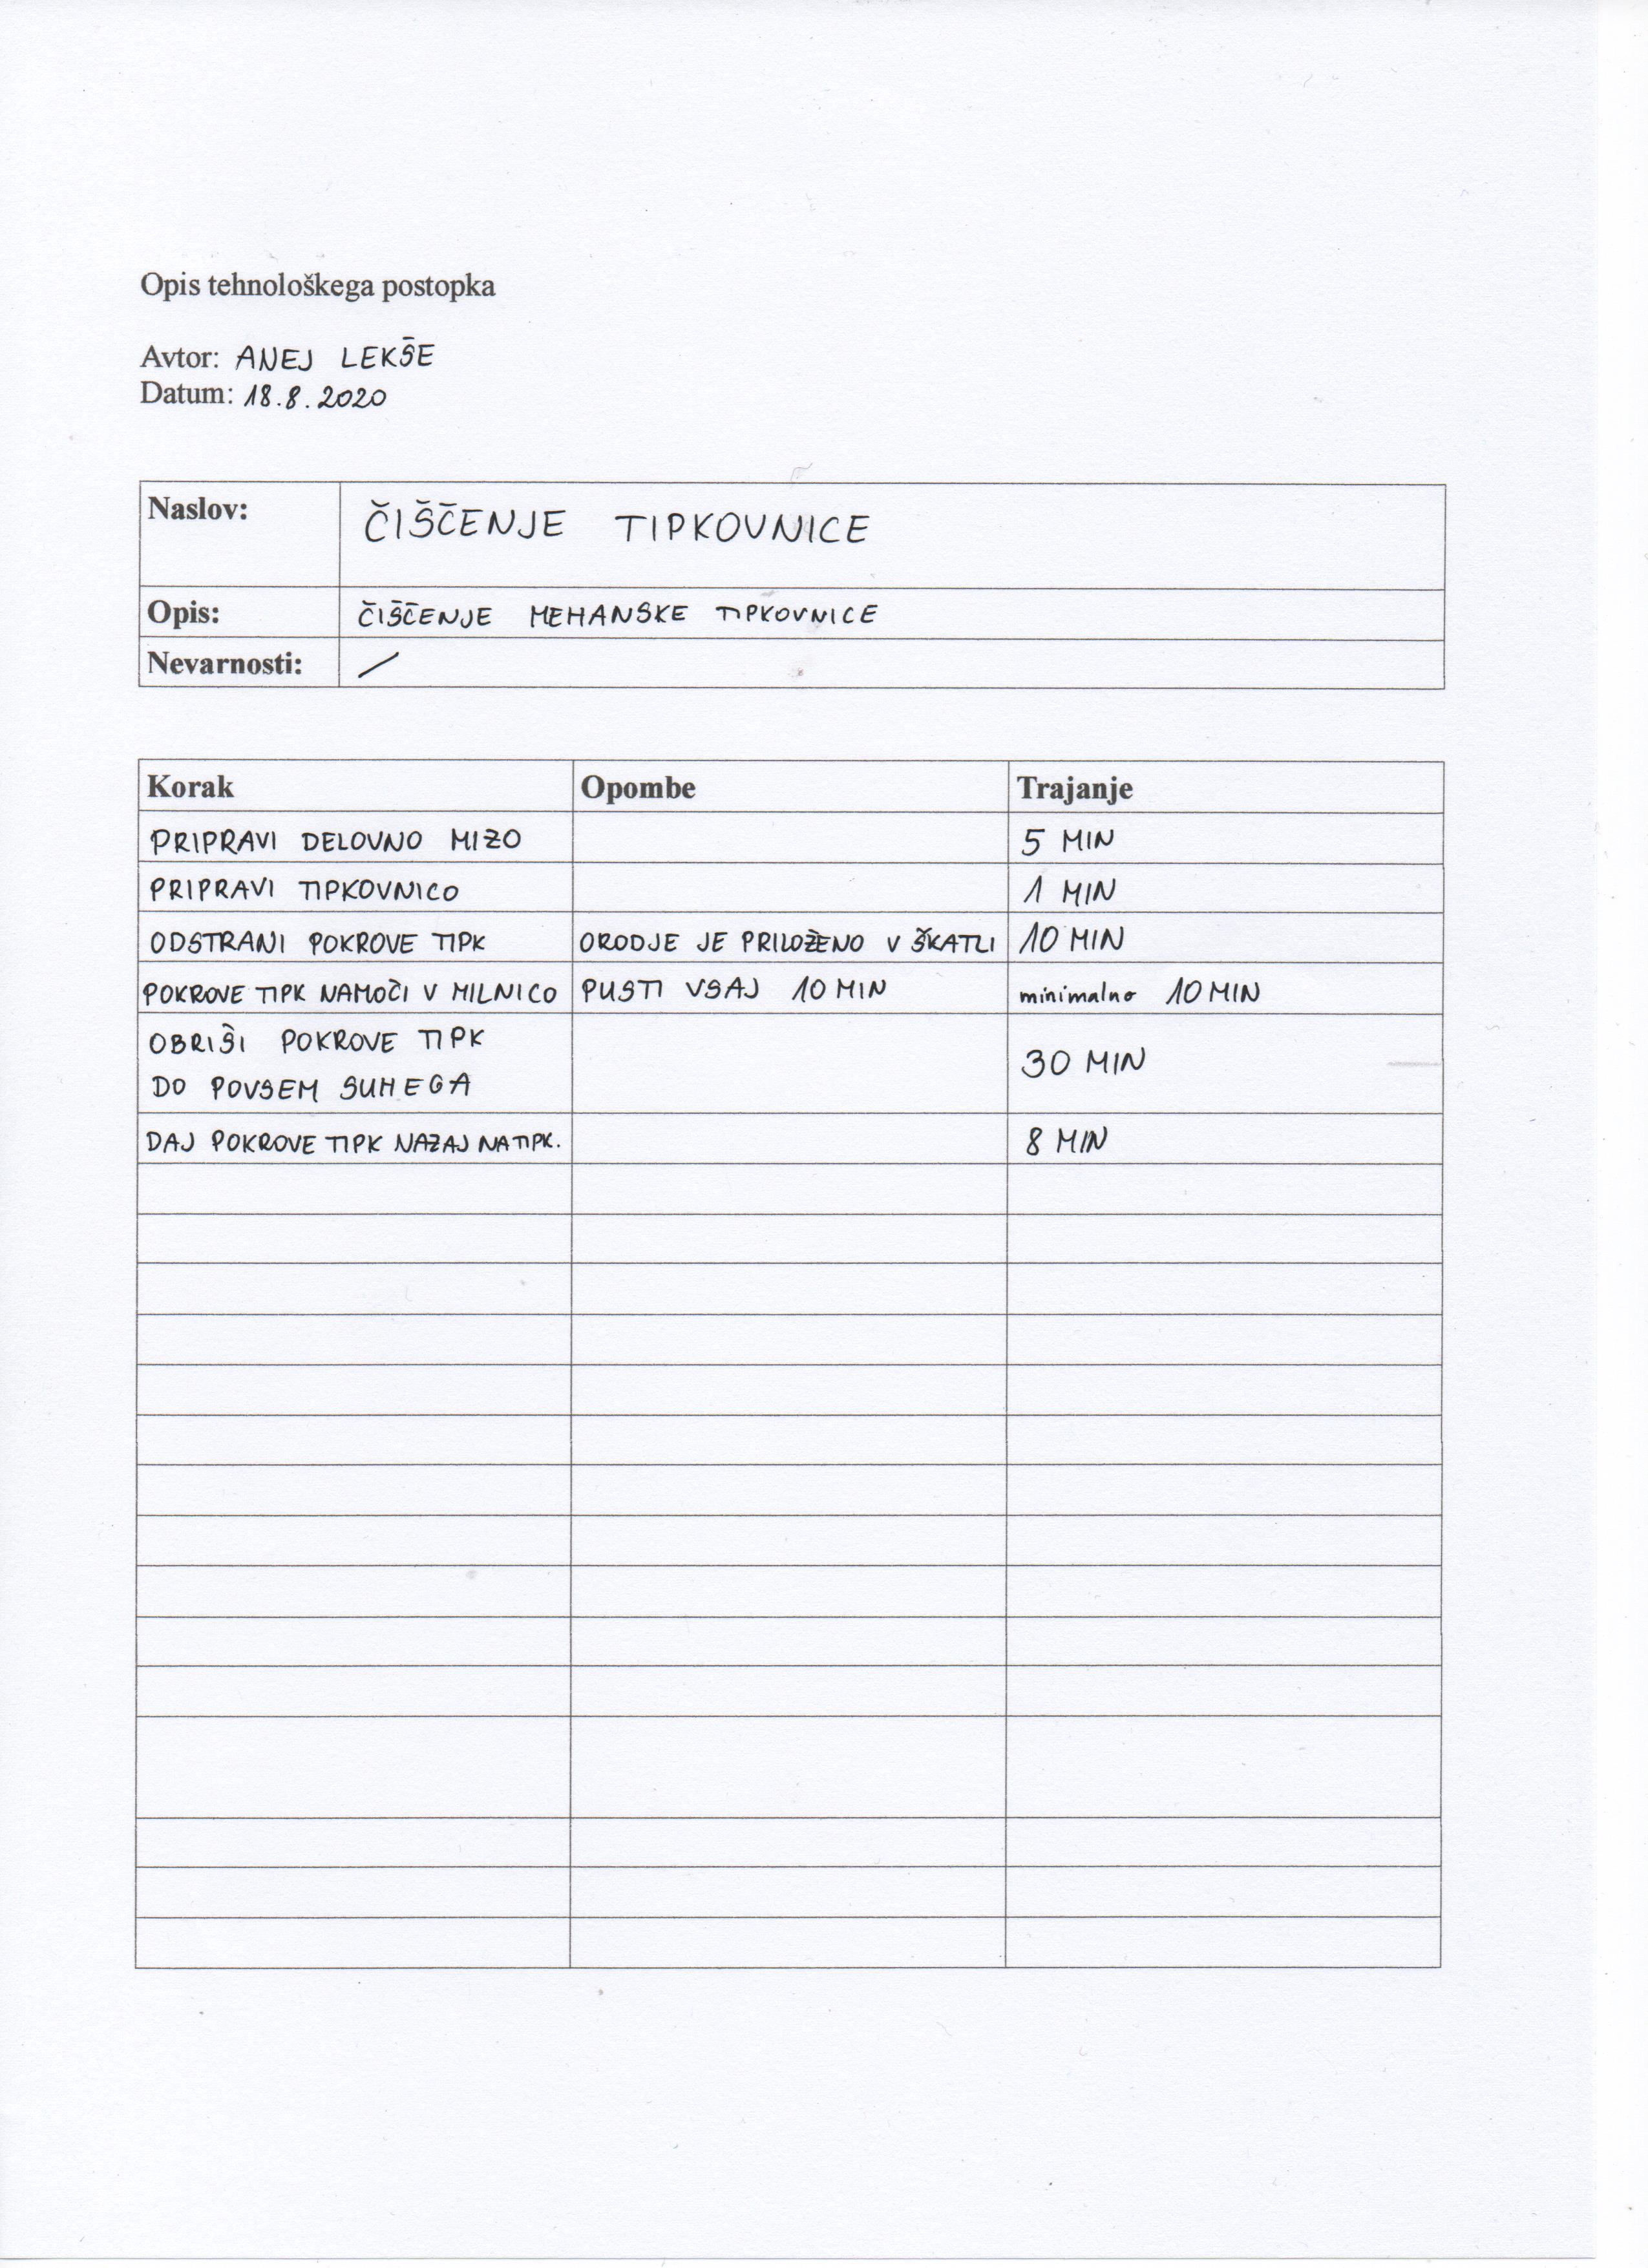 Opis tehnološkega postopka
Avtor: ANEJ LEKŠE
Datum: 18.8.2020
Naslov: ČIŠČENJE TIPKOVNICE
Opis: ČIŠČENJE MEHANSKE TIPKOVNICE
Nevarnosti: /
Korak Opombe Trajanje
PRIPRAVI DELOVNO MIZO 5 MIN
PRIPRAVI TIPKOVNICO 1 MIN
ODSTRANI POKROVE TIPK ORODJE JE PRILOŽENO V ŠKATLI 10 MIN
POKROVE TIPK NAMOČI V MILNICO PUSTI VSAJ 10 MIN minimalno 10 MIN
OBRIŠI POKROVE TIPK
DO POVSEM SUHEGA 30 MIN
DAJ POKROVE TIPK NAZAJ NA TIPK. 8 MIN